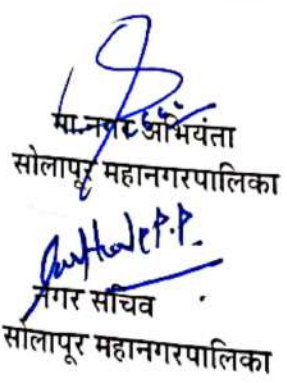 मा.नगर अभियंता
सोलापूर महानगरपालिका
नगर सचिव
सोलापूर महानगरपालिका